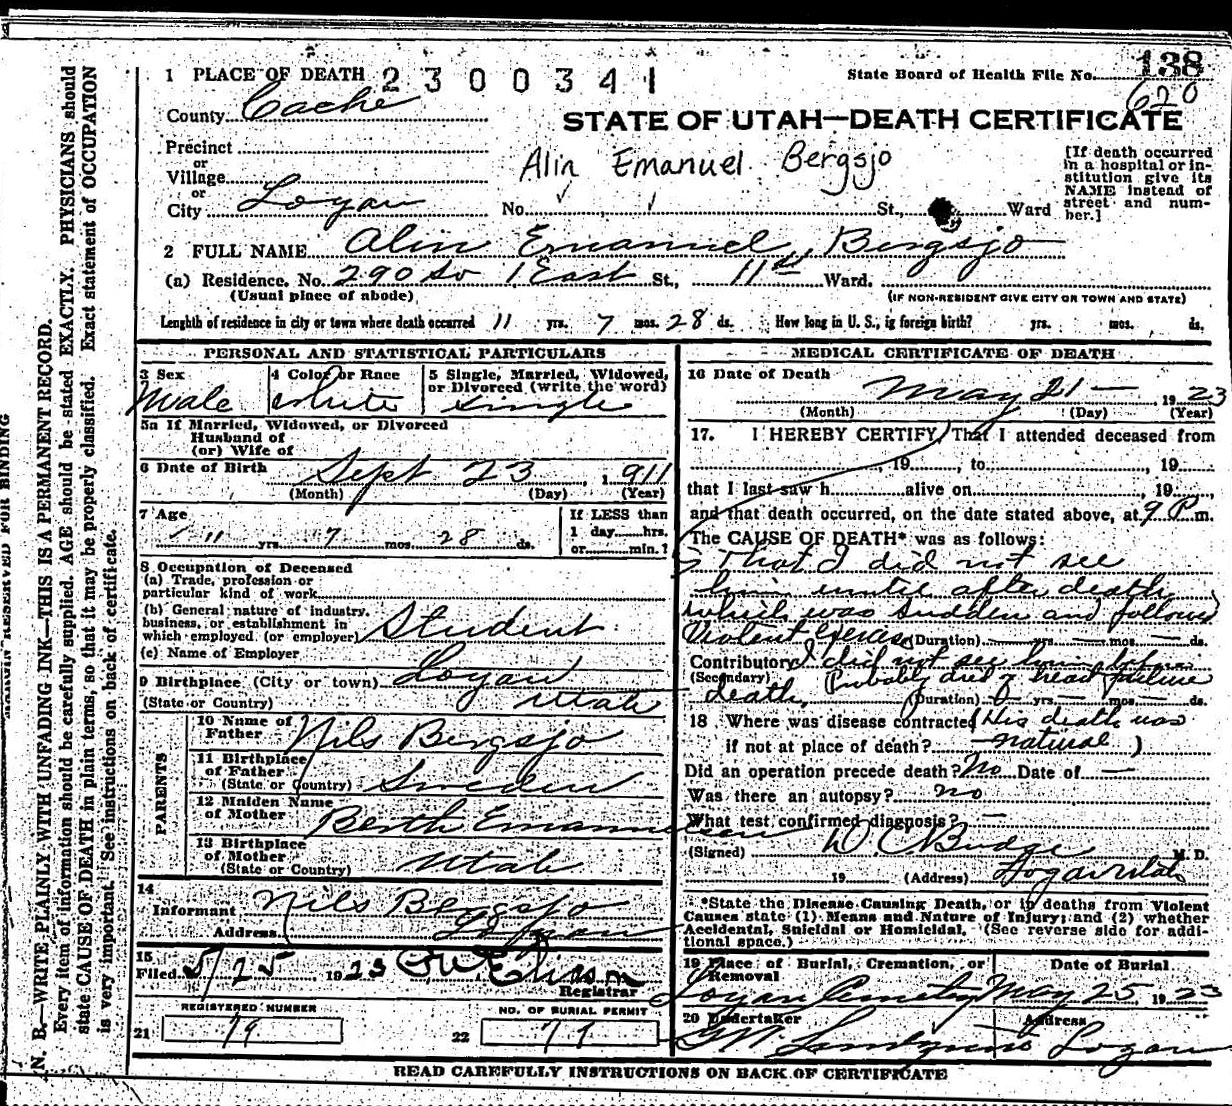 138
1 PLACE OF DEATH 2300341 State Board of Health File No.
620
County Cache
STATE OF UTAH—DEATH CERTIFICATE
Precinct
or
Village
or
City Logan
Alin Emanuel Bergsjo
[If death occurred
in a hospital or in-
stitution give its
NAME instead of
street and num-
ber.]
No. St., Ward
2 FULL NAME Alin Emanuel Bergsjo
(a) Residence. No. 290 So 1 East St., 11st Ward.
(Usual place of abode) (IF NON-RESIDENT GIVE CITY OR TOWN AND STATE)
Lenghth of residence in city or town where death occurred 11 yrs. 7 mos. 28 ds. How long in U. S., ig foreign birth? yrs. mos. ds.
PERSONAL AND STATISTICAL PARTICULARS
3 Sex
Male
4 Color or Race
White
5 Single, Married, Widowed,
or Divorced (write the word)
Single
5a If Married, Widowed, or Divorced
Husband of
(or) Wife of
6 Date of Birth Sept 23, 1911
(Month) (Day) (Year)
7 Age
11 yrs. 7 mos. 28 ds.
If LESS than
1 day hrs.
or min.?
8 Occupation of Deceased
(a) Trade, profession or
particular kind of work
(b) General nature of industry,
business, or establishment in
which employed (or employer) Student
(c) Name of Employer
9 Birthplace (City or town) Logan
(State or Country) Utah
PARENTS
10 Name of
Father Nils Bergsjo
11 Birthplace
of Father
(State or Country) Sweden
12 Maiden Name
of Mother Berth
13 Birthplace
of Mother
(State or Country) Utah
14
Informant Nils Bergsjo
Address Logan
15
Filed 5/25 1923
Registrar
REGISTERED NUMBER
21 79
NO. OF BURIAL PERMIT
22 77
MEDICAL CERTIFICATE OF DEATH
16 Date of Death May 21 — 1923
(Month) (Day) (Year)
17. I HEREBY CERTIFY, That I attended deceased from
, 19 , to , 19
that I last saw h alive on , 19
and that death occurred, on the date stated above, at 9 P m.
The CAUSE OF DEATH* was as follows:
That I did not see
him until after death
which was sudden and followed
Violent (Duration) — yrs — mos — ds.
Contributory I did not see him before
(Secondary) death, Probably died of heart failure
(Duration) yrs — mos — ds.
18 Where was disease contracted (His death was
if not at place of death? natural)
Did an operation precede death? No Date of —
Was there an autopsy? no
What test confirmed diagnosis? —
(Signed) D. C. Budge M. D.
19 (Address) Logan Utah
*State the Disease Causing Death, or in deaths from Violent
Causes state (1) Means and Nature of Injury; and (2) whether
Accidental, Suicidal or Homicidal. (See reverse side for addi-
tional space.)
19 Place of Burial, Cremation, or
Removal
Date of Burial
Logan Cemetery May 25, 1923
20 Undertaker Address
Lindquist Logan
READ CAREFULLY INSTRUCTIONS ON BACK OF CERTIFICATE
MARGIN RESERVED FOR BINDING
N. B.—WRITE PLAINLY WITH UNFADING INK—THIS IS A PERMANENT RECORD.
Every item of information should be carefully supplied. AGE should be stated EXACTLY. PHYSICIANS should
state CAUSE OF DEATH in plain terms, so that it may be properly classified. Exact statement of OCCUPATION
is very important. See instructions on back of certificate.